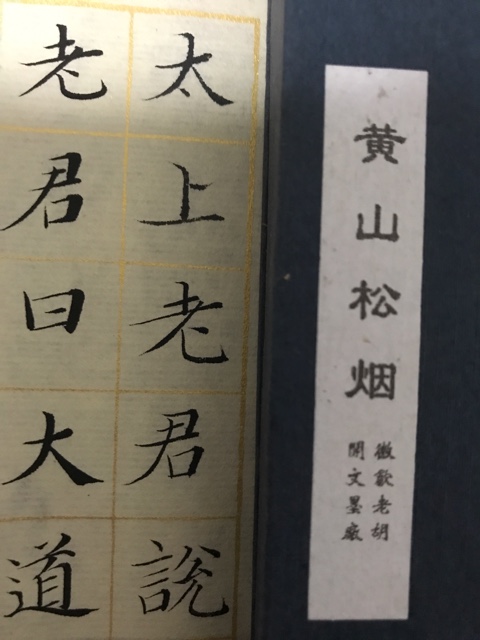 太上老君説
老君曰大道
黄山松烟
徽歙老胡
開文墨廠